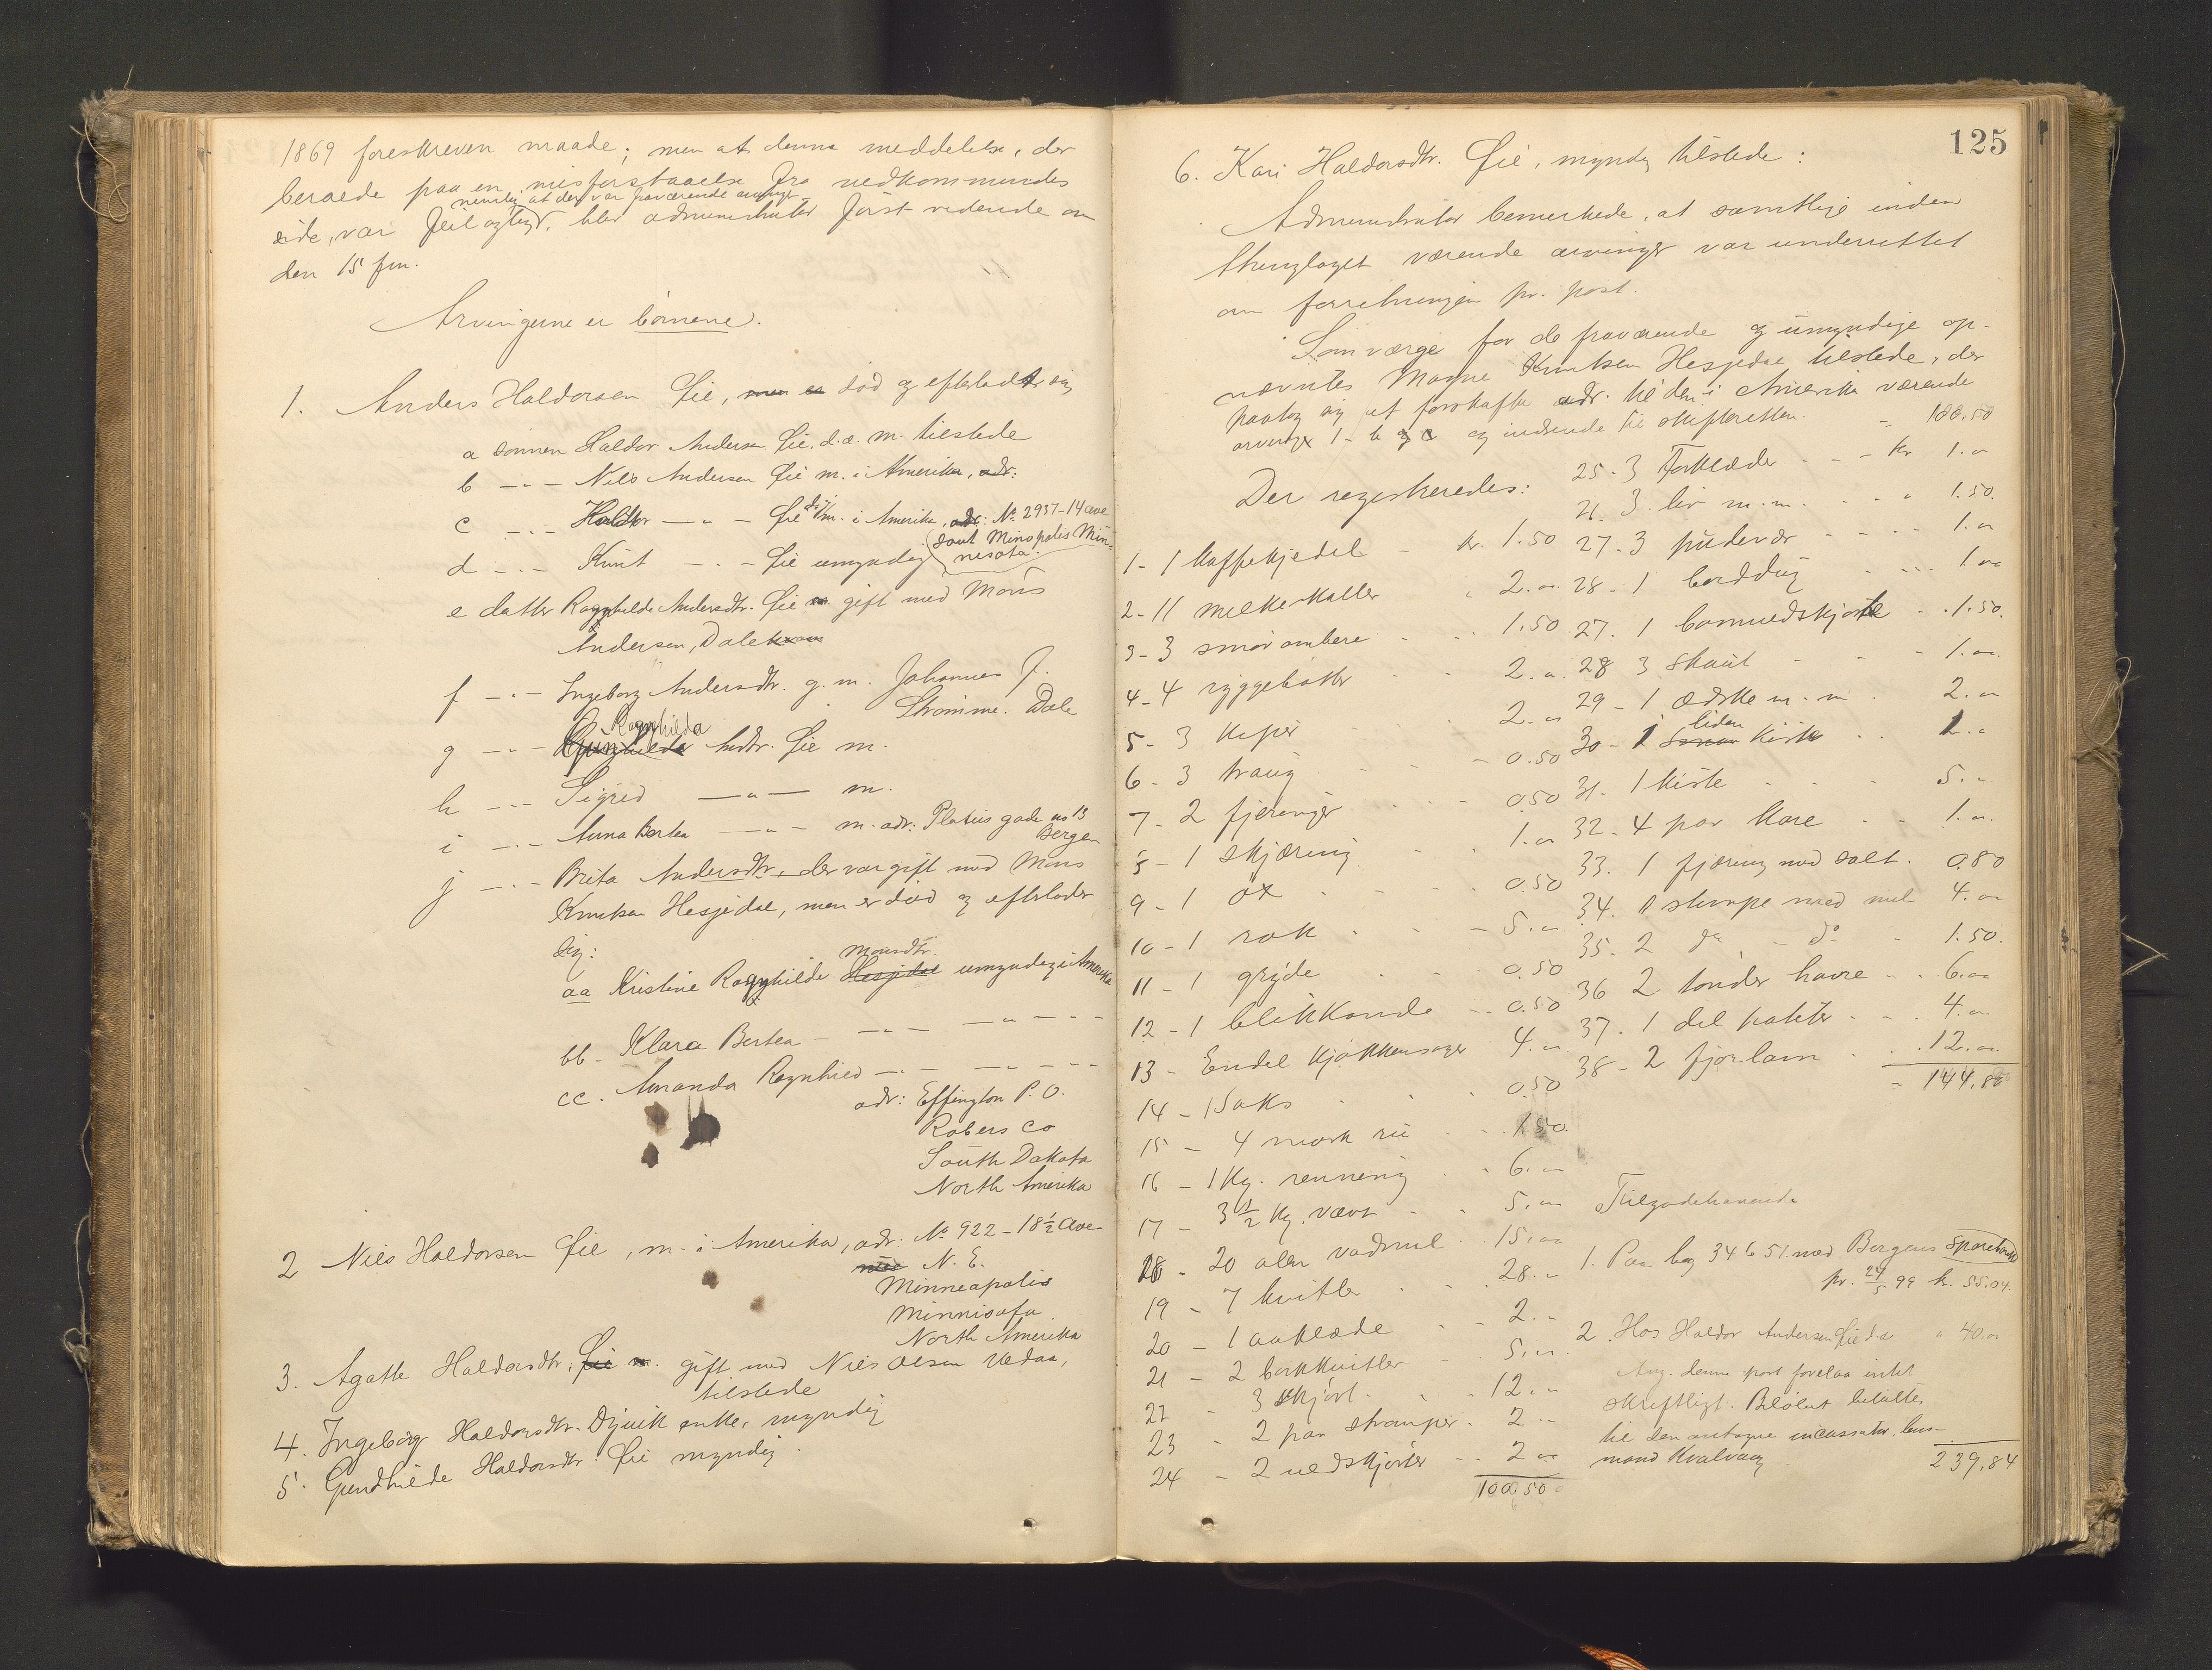 1869 foreskreven maade; men at denne meddelelse, der
beroede paa en misforstaaelse fra vedkommendes
nemlig at der var fraværende arvinger
side, var feilagtigt, blev administrator først vidende om
den 15 ds.
Arvingerne er børnene.
1. Anders Haldorsen Øie, men er død og efterladt sig
a sønnen Haldor Andersen Øie, d.æ. m. tilstede
b -"- Nils Andersen Øie m. i Amerika, adr:
c -"- Haldor -"- Øie d.y. m. i Amerika, adr: No. 2957-14 ave
sout Minopolis Min-
nesota.
d -"- Knut -"- Øie umyndig
e datter Ragnhilde Andersdtr. Øie m gift med Mons
Andersen, Dale
f -"- Ingeborg Andersdtr. g. m. Johannes J.
Strømme. Dale
Ragnhilda
g -"- Andtr. Øie m.
h -"- Sigrid -"- m.
i -"- Anna Bertea -"- m. adr: Platius gade no 13
Bergen
j -"- Brita Andersdtr, der var gift med Mons
Knutsen Hesjedal, men er død og efterlader
sig:
Monsdtr.
aa Kristine Ragnhilde Hesjedal umyndig i Amerika
bb - Klara Bertea -"- -"- - -
cc. Amanda Ragnhild -"- -"- - -
adr: Effington P. O.
Robers Co
South Dakota
North Amerika
2 Nils Haldorsen Øie, m. i Amerika, adr: No 922 - 18½ Ave
N. E.
Minneapolis
Minnisota.
North Amerika
3. Agatte Haldorsdtr, Øie m. gift med Nils Olsen Vedaa,
tilstede
4. Ingeborg Haldorsdtr. Dyvik enke, myndig
5. Gundhilde Haldorsdtr. Øie myndig.
125
6. Kari Haldorsdtr. Øie, myndig tilstede:
Administrator bemerkede, at samtlige inden
thinglaget værende arvinger var underrettet
om forretningen pr. post.
Som værge for de fraværende og umyndige op-
nævntes Magne Knutsen Hesjedal tilstede, der
paatog sig at forskaffe adr. til den i Amerika værende
arvinge 1 - b og c og indsende til skifteretten.
Der registreredes:
1 - 1 kaffekjedel - kr. 1.50
2 - 11 melkekoller " 2."
3 - 3 smørambere 1.50
4 - 4 ryggebøtter 2."
5 - 3 kiper 2."
6 - 3 traug 0.50
7 - 2 fjeringer 0.50
8 - 1 skjæring 1."
9 - 1 øx 0.50
10 - 1 rok 5."
11 - 1 gryde 0.50
12 - 1 blikkande 0.50
13 - Endel kjøkkensager 4."
14 - 1 saks 0.50
15 - 4 mark 1.50
16 - 1 kg. renning 6."
17 - 3½ kg. 5."
18 - 20 alen vadmel 15."
19 - 7 kvitler 28."
20 - 1 aaklæde 2."
21 - 2 5."
22 - 3 skjørt 12."
23 - 2 par strømper 2."
24 - 2 uldskjorter 2."
100 50
= 100.50
25 - 3 Forklæder - - kr 1."
26. 3 liv m.m. 1.50.
27. 3 pudevar 1."
28 - 1 borddug 1."
27. 1 bomuldskjole 1.50.
28 3 skaut 1."
29 - 1 ædske m. m. 2."
liden
30 - 1 kiste 2."
31 - 1 kiste 5."
32 - 4 par kare 1."
33. 1 fjæring med salt. 0.80
34. 1 stampe med mel 4."
35. 2 do - do 1.50.
36 2 tønder havre 6."
37. 1 del poteter 4."
38 - 2 fjorlam 12."
= 144.80
Tilgodehavende
1. Paa bog 34651 med Bergens Sparebank
pr. 24/5 99 kr. 55.04.
2. Hos Haldor Andersen Øie d.æ " 40."
Ang. denne post forelaa intet
skriftligt. Beløbet betaltes
til den antagne incassator, lens-
mand Kvalvaag
239,84